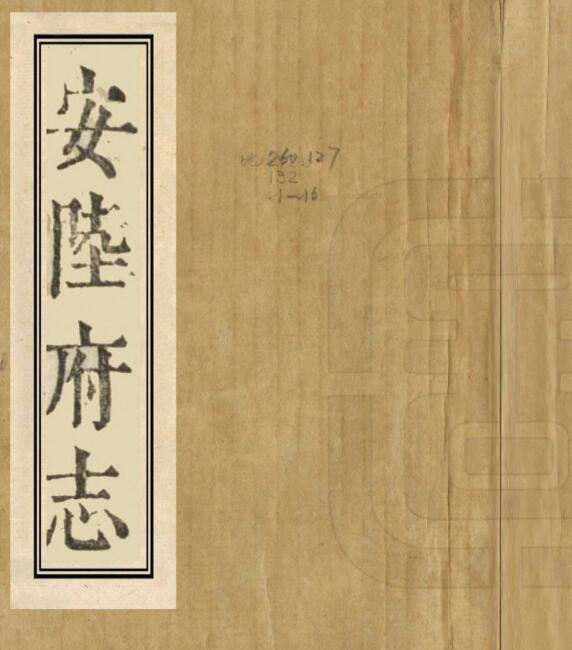 安陸府志
地260.127
132
:1~16